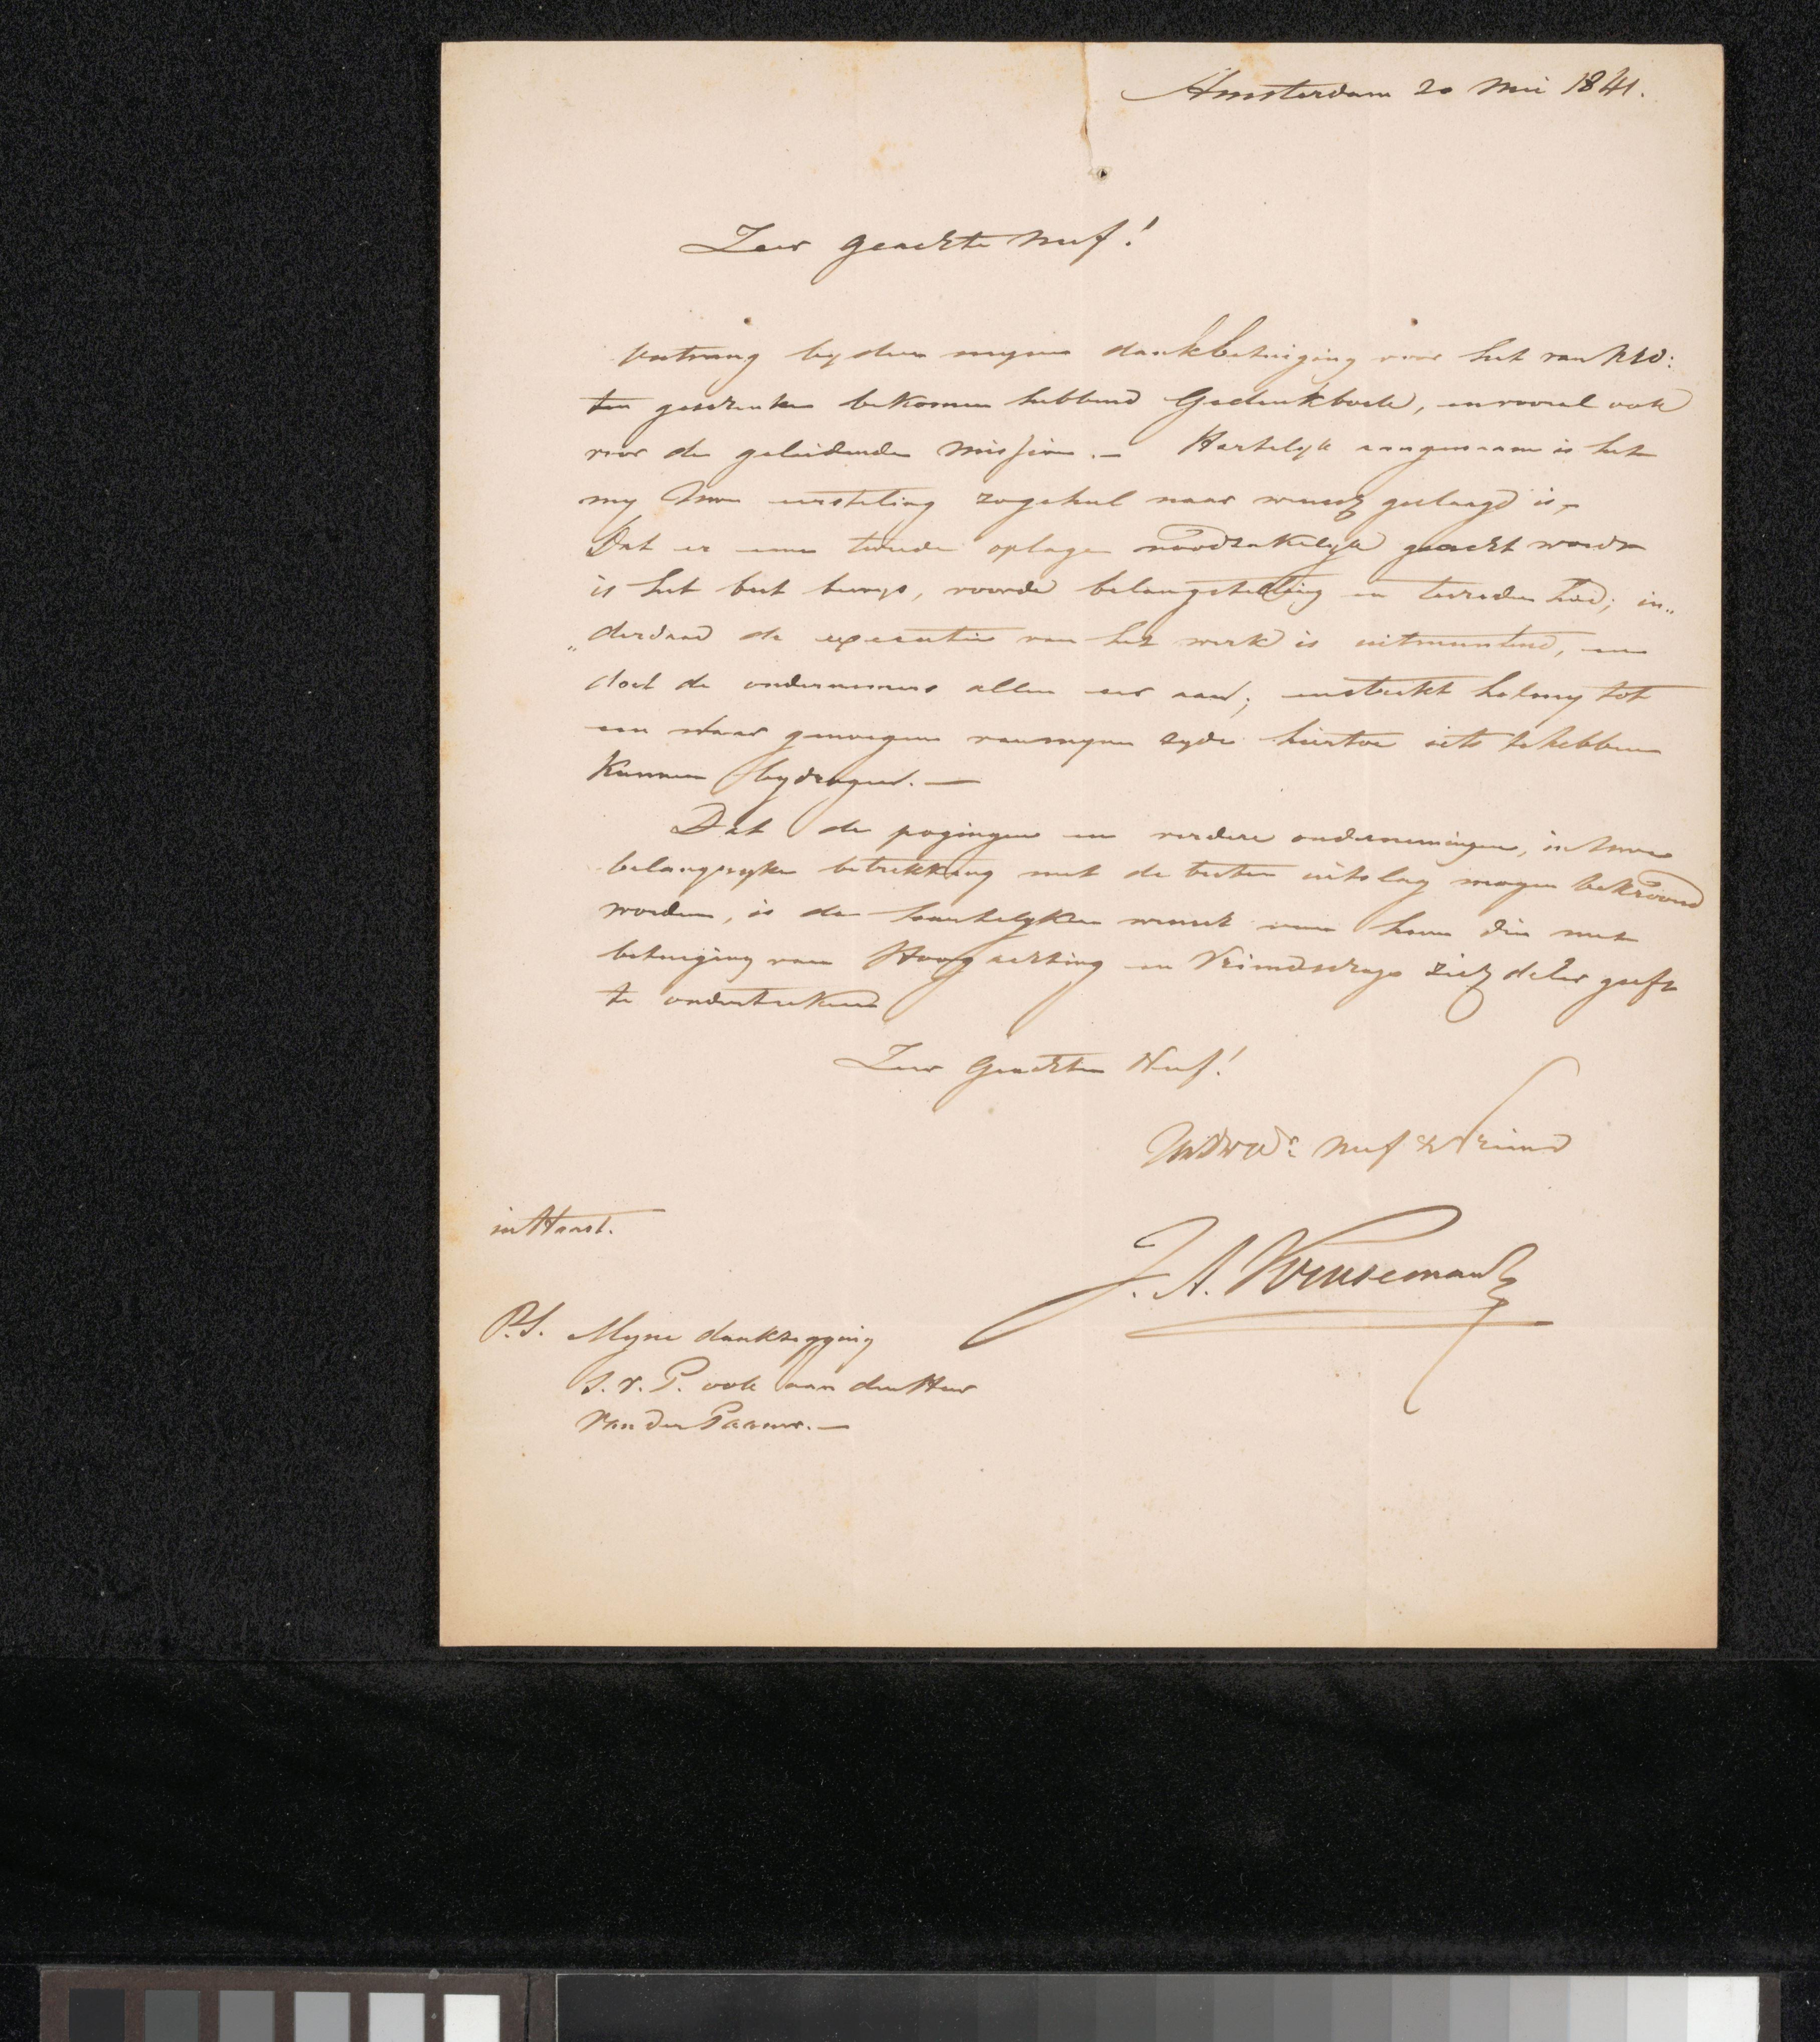 Amsterdam 20 Mei 1841.
Zeer geachte Neef!
Ontvang by deze myne dankbetuiging voor het van UEd:
ten geschenke bekomen hebbend Gedenkboek, en vooral ook
voor de geleidende missive. — Hartelyk aangenaam is het
my Uwe eersteling zogeheel naar wensch geslaagd is,
Dat er eene tweede oplage noodzakelyk geacht wordt
is het best bewys, voor de belangstelling en tevredenheid; in„
„derdaad de executie van het werk is uitmuntend, en
doet de ondernemers alle eer aan; en strekt het my tot
een waar genoegen van myne zyde hiertoe iets te hebben
kunnen bydragen. —
Dat de pogingen en verdere ondernemingen, in Uwe
belangryke betrekking met de besten uitslag mogen bekroond
worden, is de hartelyken wensch van hem die met
betuiging van Hoogachting en Vriendschap zich de Eer geeft
te onderteekenen
Zeer Geachten Neef!
UEdwd: Neef & Vriend
in Haast.
J. A. Kruseman
P.S. Myne dankzegging
S. V. P. ook aan den Heer
Van der Paauw. —